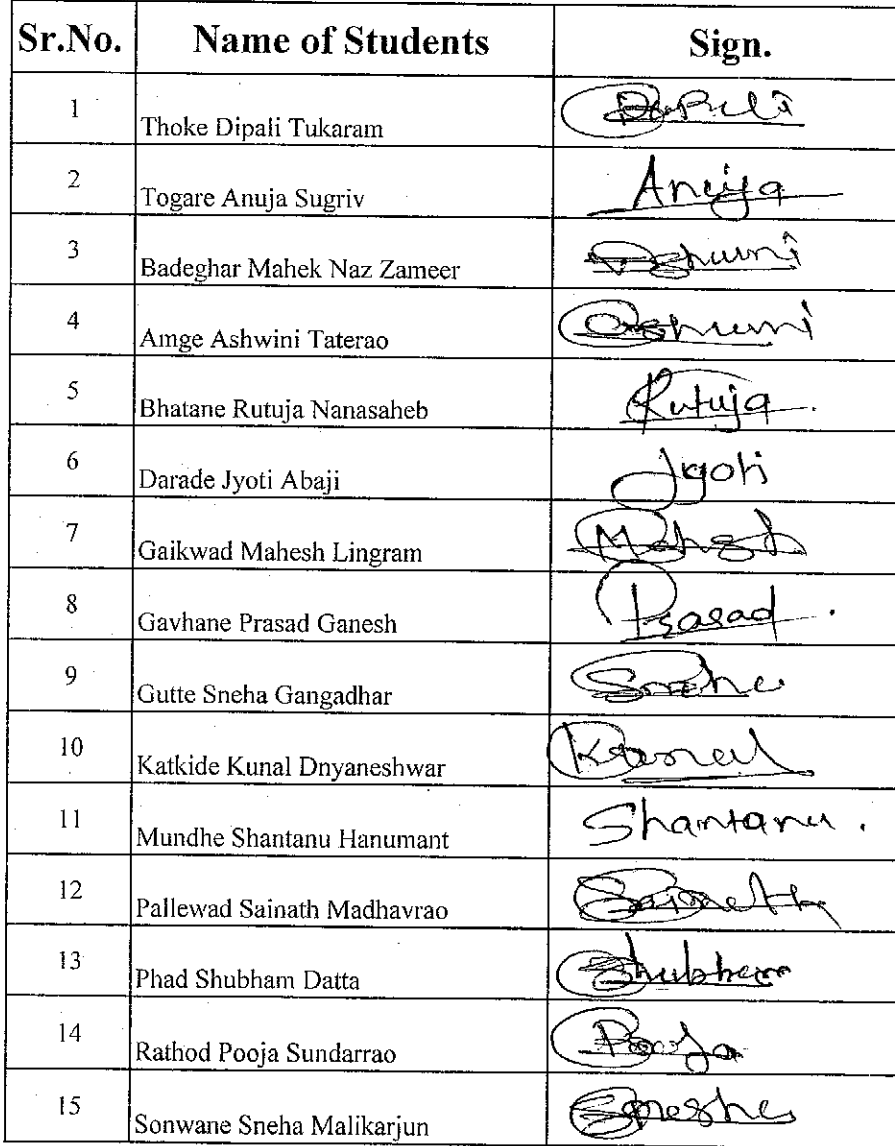 Sr.No. Name of Students Sign.
1 Thoke Dipali Tukaram Dipali
2 Togare Anuja Sugriv Anuja
3 Badeghar Mahek Naz Zameer
4 Amge Ashwini Taterao Ashwini
5 Bhatane Rutuja Nanasaheb Rutuja
6 Darade Jyoti Abaji Jyoti
7 Gaikwad Mahesh Lingram Mahesh
8 Gavhane Prasad Ganesh Prasad
9 Gutte Sneha Gangadhar Sneha
10 Katkide Kunal Dnyaneshwar Kunal
11 Mundhe Shantanu Hanumant Shantanu.
12 Pallewad Sainath Madhavrao Sainath
13 Phad Shubham Datta Shubham
14 Rathod Pooja Sundarrao Pooja
15 Sonwane Sneha Malikarjun